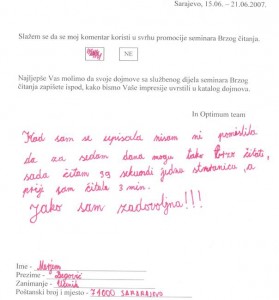 Sarajevo, 15.06. - 21.06.2007.
Slažem se da se moj komentar koristi u svrhu promocije seminara Brzog čitanja.
NE
Najljepše Vas molimo da svoje dojmove sa službenog dijela seminara Brzog
čitanja zapišete ispod, kako bismo Vaše impresije uvrstili u katalog dojmova.
In Optimum team
Kad sam se upisala nisam ni pomislila
da za sedam dana mogu tako brzo čitati,
sada čitam 39 sekundi jednu stranicu, a
prije sam čitala 3 min.
Jako sam zadovoljna!!!
Ime - Merjem
Prezime -
Zanimanje - Učenik
Poštanski broj i mjesto - 71000 SARARAJEVO